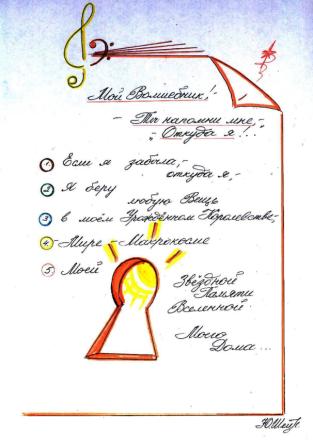 Мой Волшебник!
- Ты напомни мне,-
„Откуда я!...
1. Если я забыла,-
откуда я,-
2. Я беру
любую Вещь
3. в моём Урождённом Королевстве,-
4. -Мире -Макрокосме
5. Моей
Звёздной
Памяти
Вселенной
Моего
Дома...